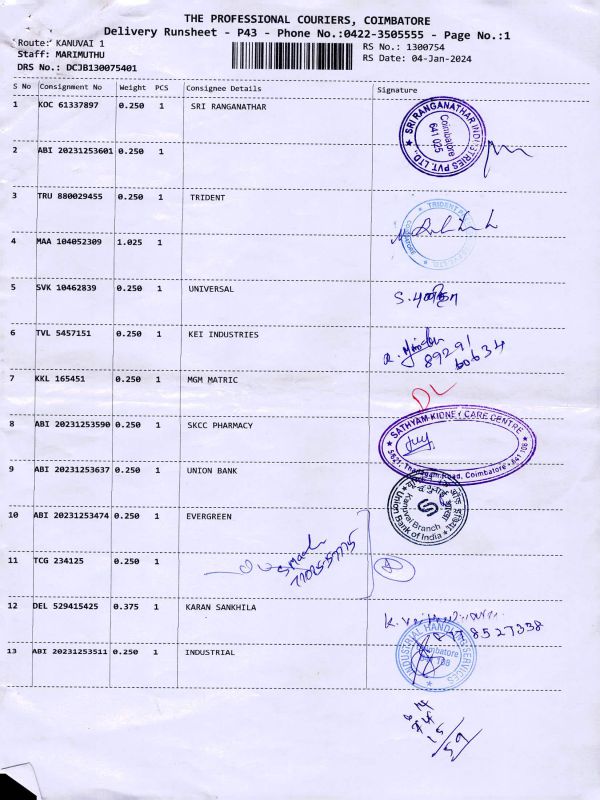 THE PROFESSIONAL COURIERS, COIMBATORE
Delivery Runsheet - P43 - Phone No.:0422-3505555 - Page No.:1
Route: KANUVAI 1
Staff: MARIMUTHU
DRS No.: DCJB130075401
RS No.: 1300754
RS Date: 04-Jan-2024
S No Consignment No Weight PCS Consignee Details Signature
1 KOC 61337897 0.250 1 SRI RANGANATHAR
SRI RANGANATHAR INDUSTRIES PVT. LTD.
Coimbatore
641 025
2 ABI 20231253601 0.250 1
3 TRU 880029455 0.250 1 TRIDENT
TRIDENT
4 MAA 104052309 1.025 1
5 SVK 10462839 0.250 1 UNIVERSAL
6 TVL 5457151 0.250 1 KEI INDUSTRIES
89291
60634
7 KKL 165451 0.250 1 MGM MATRIC
DL
8 ABI 20231253590 0.250 1 SKCC PHARMACY
SATHYAM KIDNEY CARE CENTRE
Thadagam Road, Coimbatore - 641 108
9 ABI 20231253637 0.250 1 UNION BANK
Kanuvai Branch
Union Bank of India
10 ABI 20231253474 0.250 1 EVERGREEN
11 TCG 234125 0.250 1
12 DEL 529415425 0.375 1 KARAN SANKHILA
13 ABI 20231253511 0.250 1 INDUSTRIAL
INDUSTRIAL HANDLING SERVICES
Coimbatore
15
59